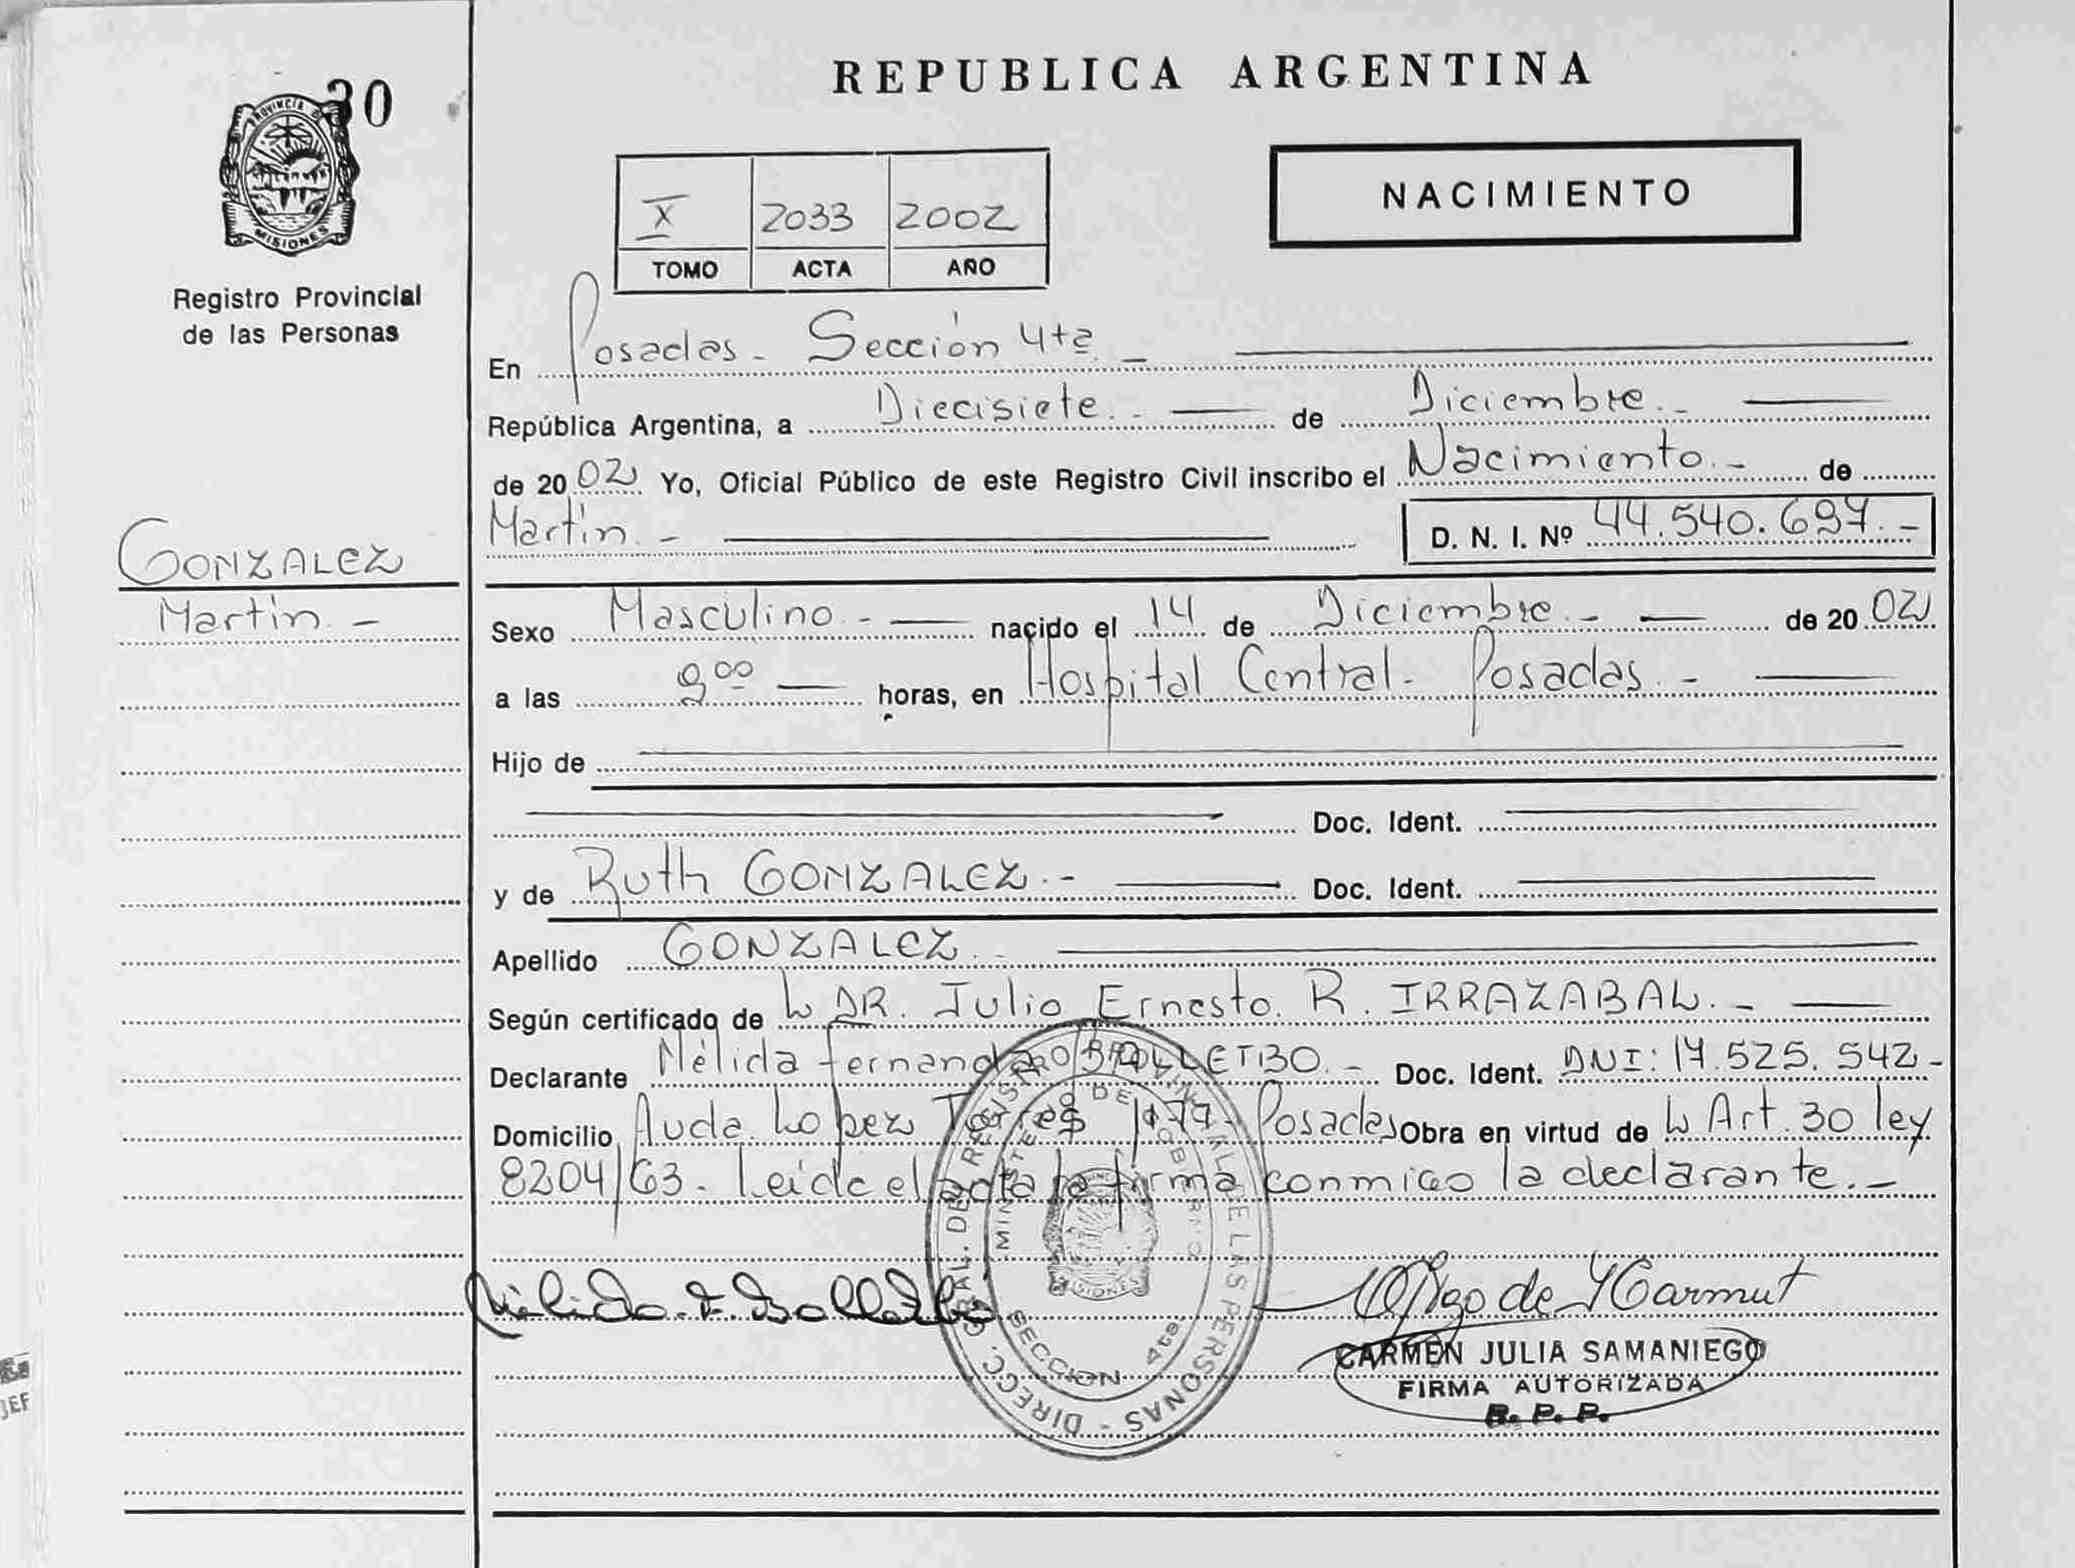 30
PROVINCIA DE
MISIONES
Registro Provincial
de las Personas
GONZALEZ
Martín. -
REPUBLICA ARGENTINA
X 2033 2002
TOMO ACTA AÑO
NACIMIENTO
En Posadas - Sección 4ta. -
República Argentina, a Diecisiete. - de Diciembre. -
de 2002 Yo, Oficial Público de este Registro Civil inscribo el Nacimiento. - de
Martín. - D. N. I. Nº 44.540.697. -
Sexo Masculino. - nacido el 14 de Diciembre. - de 2002
a las 9 00 horas, en Hospital Central - Posadas. -
Hijo de
Doc. Ident.
y de Ruth GONZALEZ. - Doc. Ident.
Apellido GONZALEZ. -
Según certificado de DR. Julio Ernesto R. IRRAZABAL. -
Declarante Nélida Fernanda Doc. Ident. DNI: 17.525.542 -
Domicilio Avda. Lopez Torres Posadas Obra en virtud de Art. 30 ley
8204/63. Leída el acta la firma conmigo la declarante. -
DIRECC. GRAL. DEL REGISTRO PROVINCIAL DE LAS PERSONAS -
MINISTERIO DE GOBIERNO
MISIONES
SECCION 4ta.
CARMEN JULIA SAMANIEGO
FIRMA AUTORIZADA
R. P. P.
JEF